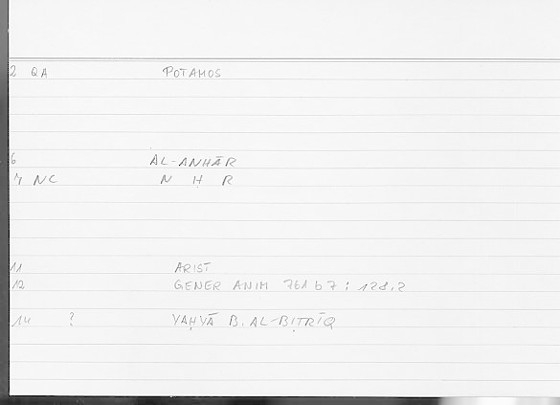 2 QA POTAMOS
6 AL-ANHĀR
7 NC N H R
11 ARIST
12 GENER ANIM 761 b 7 : 128,2
14 ? YAḤYĀ B. AL-BIṬRĪQ